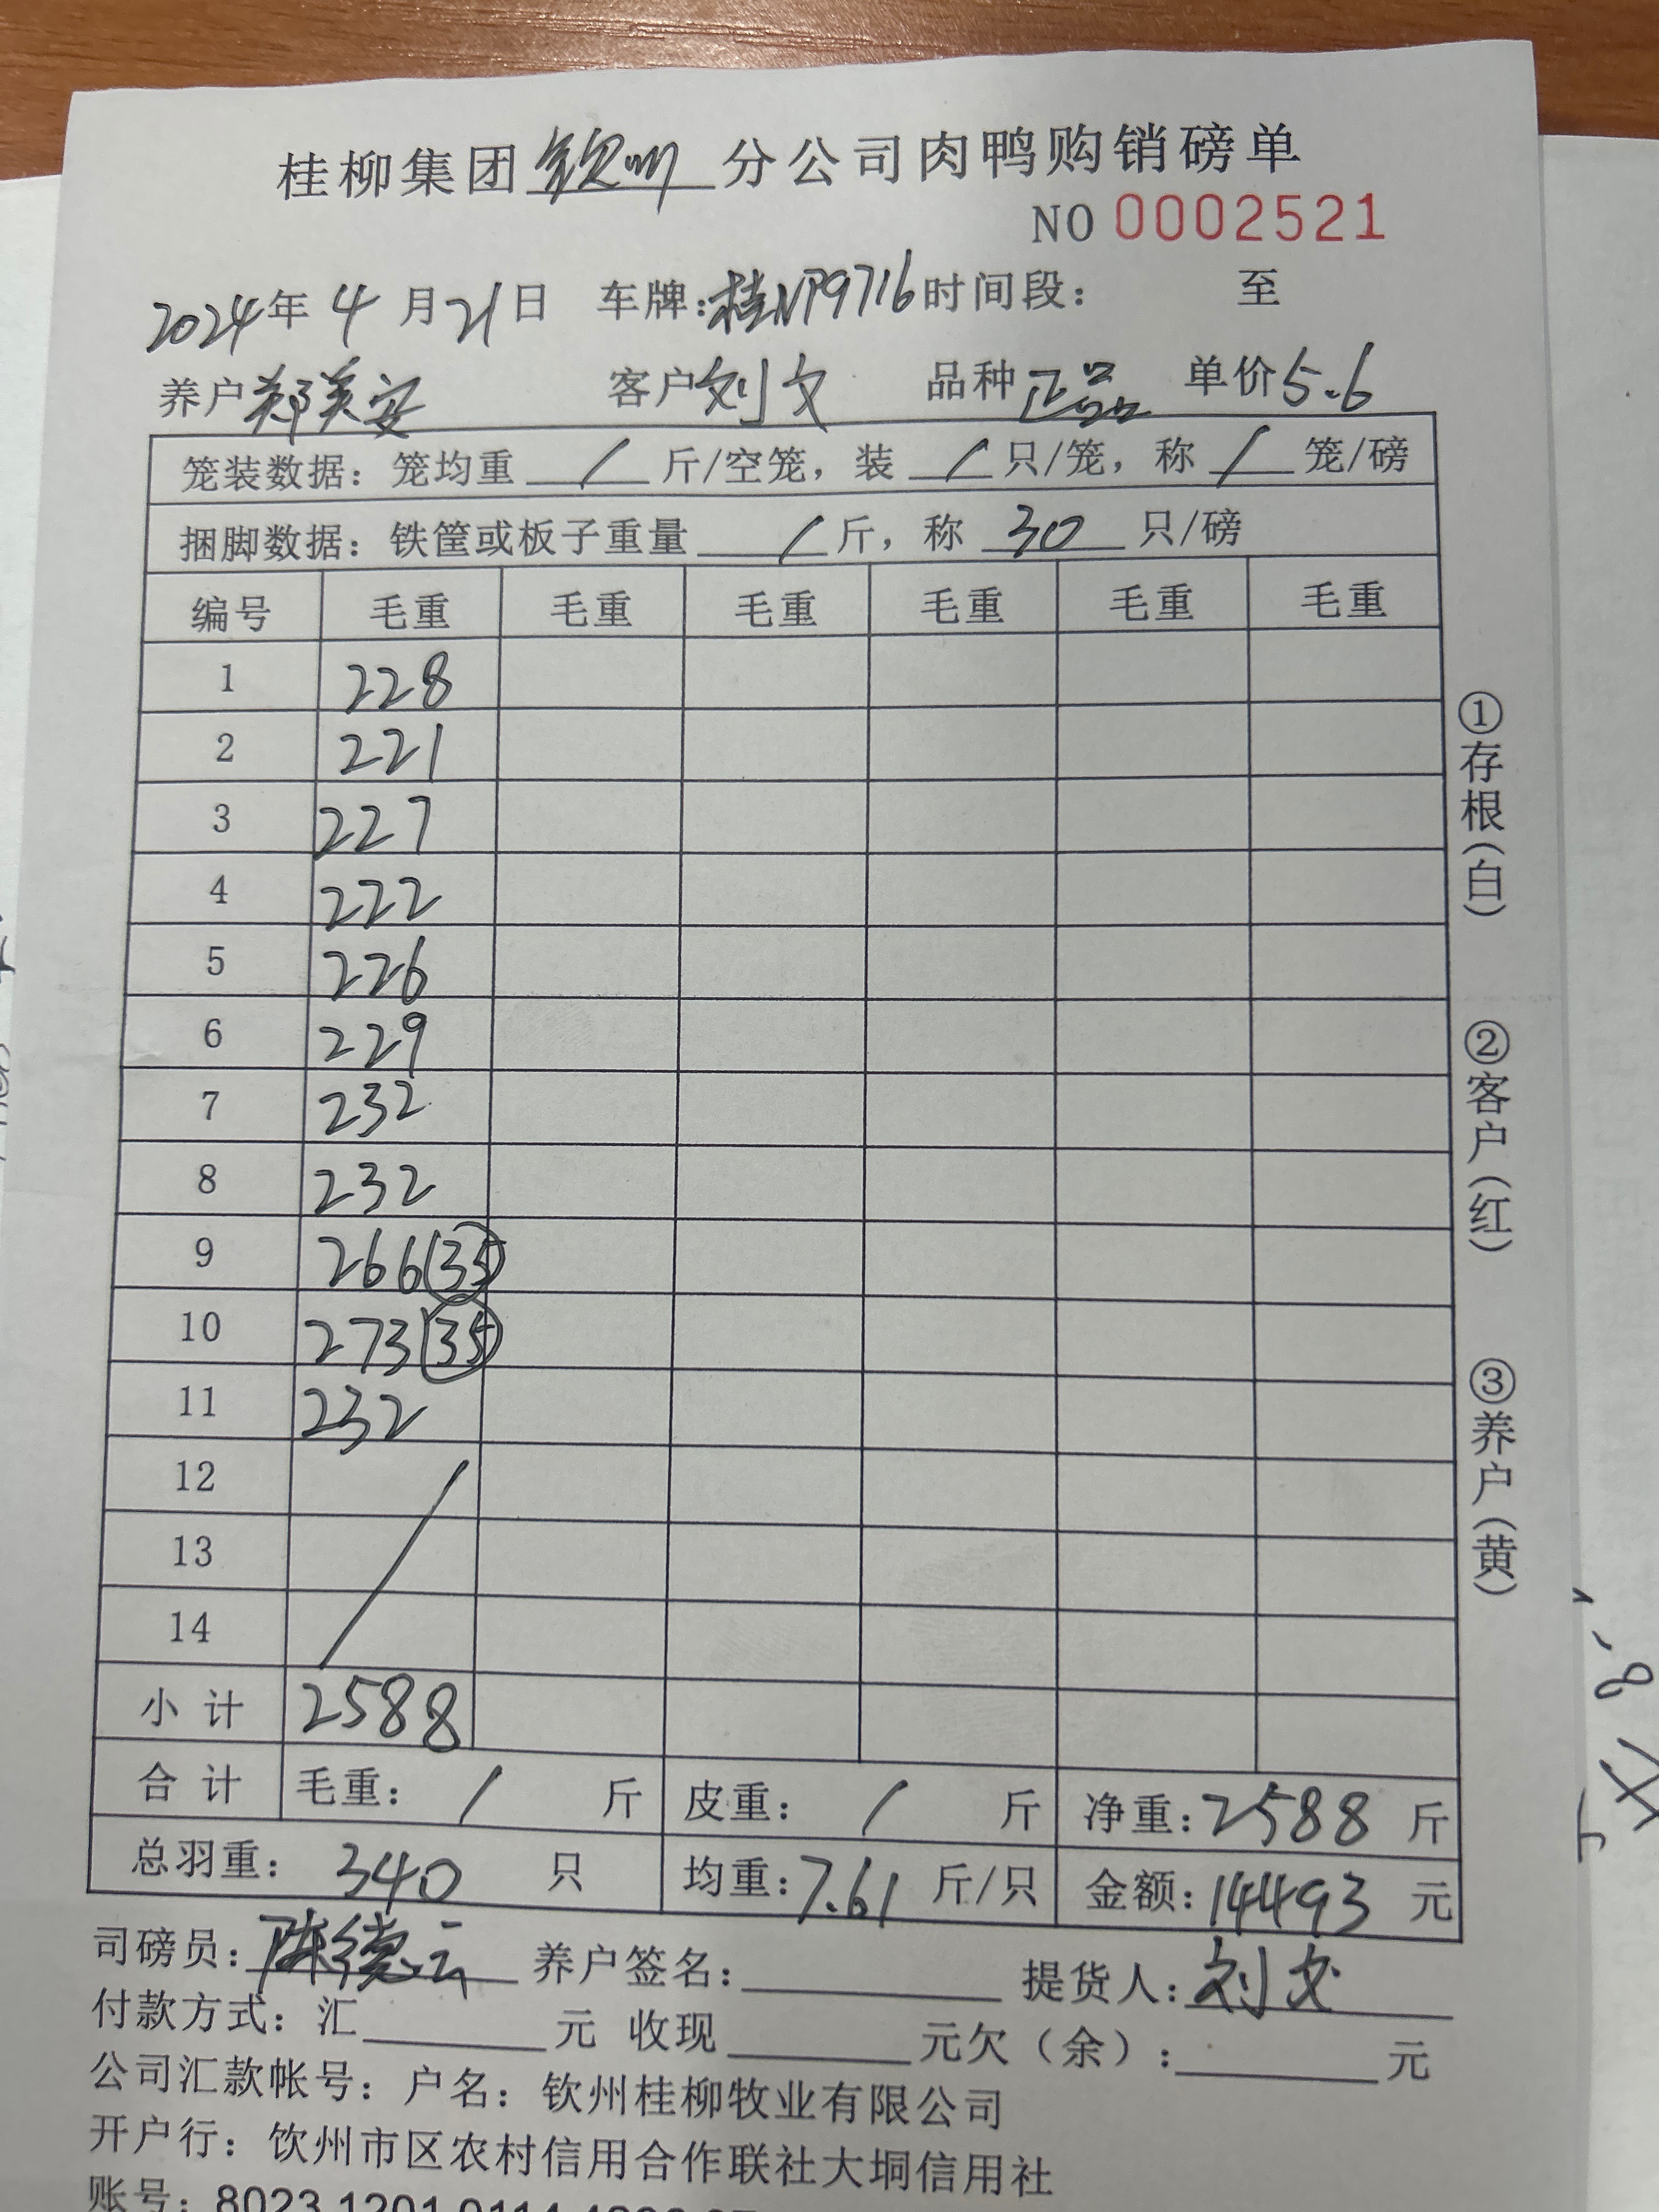 桂柳集团钦州分公司肉鸭购销磅单
NO 0002521
2024年4月21日 车牌:桂NP9716时间段: 至
养户郑美安 客户刘文 品种正品 单价5.6
笼装数据: 笼均重 / 斤/空笼, 装 / 只/笼, 称 / 笼/磅
捆脚数据: 铁筐或板子重量 / 斤, 称 30 只/磅
编号 毛重 毛重 毛重 毛重 毛重 毛重
1 228
2 221
3 227
4 222
5 226
6 229
7 232
8 232
9 266(35)
10 273(35)
11 232
12
13
14
小计 2588
合计 毛重: / 斤 皮重: / 斤 净重:2588斤
总羽重: 340 只 均重:7.61斤/只 金额:14493元
司磅员:陈德云 养户签名: 提货人:刘文
付款方式: 汇 元 收现 元欠(余): 元
公司汇款帐号: 户名: 钦州桂柳牧业有限公司
开户行: 饮州市区农村信用合作联社大垌信用社
账号: 8023 1201 0114
①存根(白)
②客户(红)
③养户(黄)